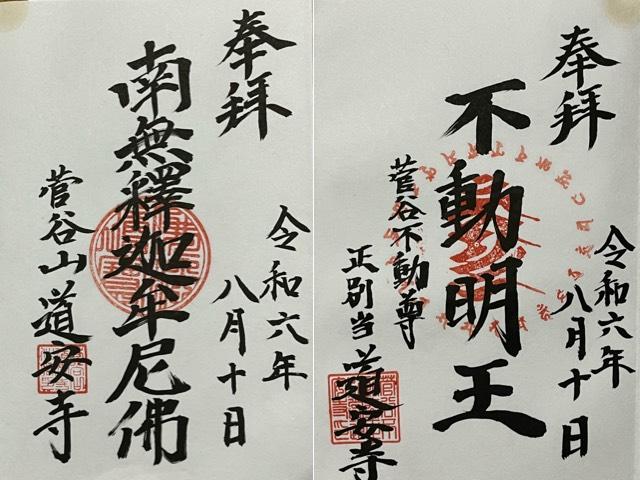 奉拝
令和六年
八月十日
南無釋迦牟尼佛
菅谷山道安寺
奉拝
令和六年
八月十日
不動明王
菅谷不動尊
正別当道安寺